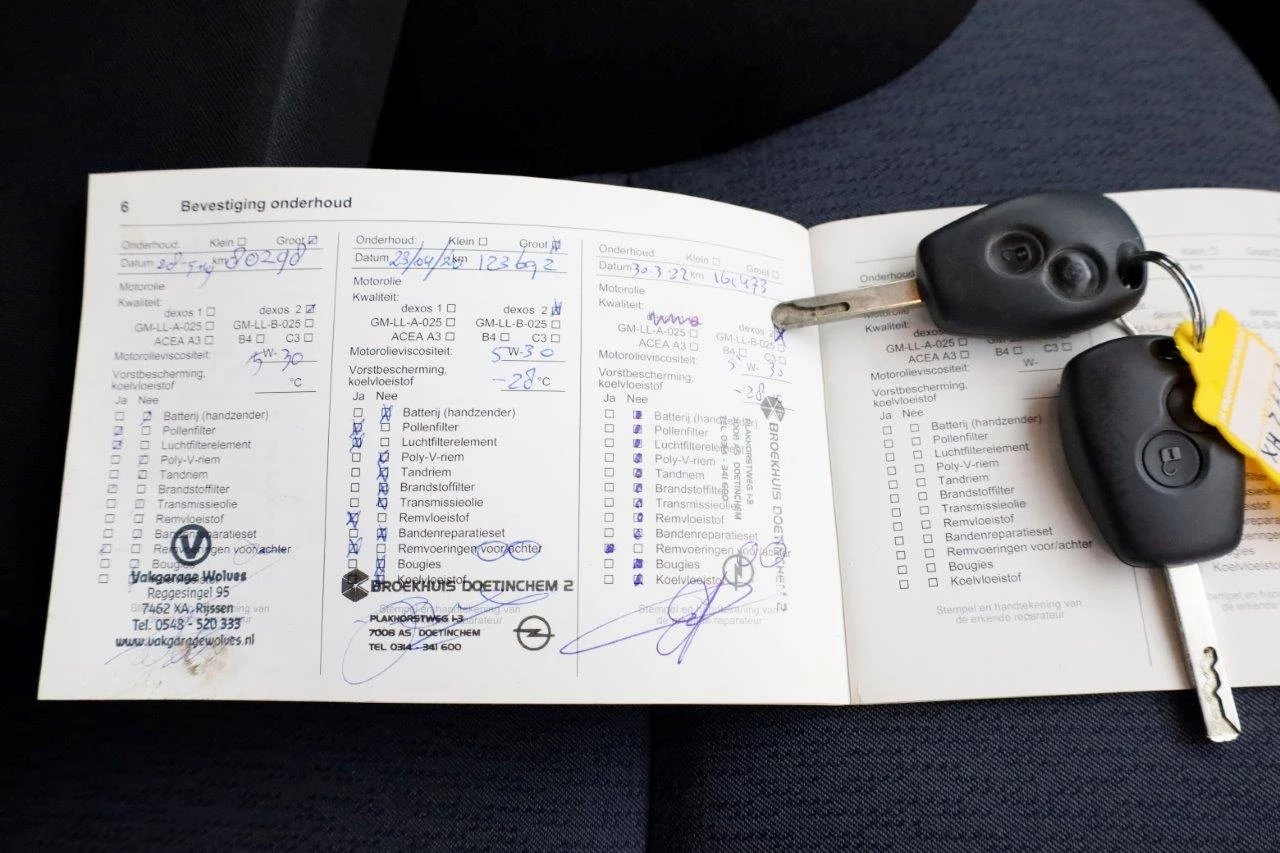 6 Bevestiging onderhoud
Onderhoud: Klein Groot
Datum km 80298
Motorolie
Kwaliteit:
dexos 1 dexos 2
GM-LL-A-025 GM-LL-B-025
ACEA A3 B4 C3
Motorolieviscositeit: 5 W- 30
Vorstbescherming,
koelvloeistof °C
Ja Nee
Batterij (handzender)
Pollenfilter
Luchtfilterelement
Poly-V-riem
Tandriem
Brandstoffilter
Transmissieolie
Remvloeistof
Bandenreparatieset
Remvoeringen voor/achter
Bougies
Vakgarage Wolves
Reggesingel 95
7462 XA Rijssen
Tel. 0548 - 520 333
www.vakgaragewolves.nl
Onderhoud: Klein Groot
Datum 23/04/20 km 123692
Motorolie
Kwaliteit:
dexos 1 dexos 2
GM-LL-A-025 GM-LL-B-025
ACEA A3 B4 C3
Motorolieviscositeit: 5 W-30
Vorstbescherming,
koelvloeistof -28 °C
Ja Nee
Batterij (handzender)
Pollenfilter
Luchtfilterelement
Poly-V-riem
Tandriem
Brandstoffilter
Transmissieolie
Remvloeistof
Bandenreparatieset
Remvoeringen voor/achter
Bougies
Koelvloeistof
BROEKHUIS DOETINCHEM 2
Stempel en handtekening van
PLAKHORSTWEG 1-3
7008 AS DOETINCHEM
TEL 0314 - 341 600
Onderhoud: Klein Groot
Datum 30-3-22 km 161473
Motorolie
Kwaliteit:
dexos 2
GM-LL-A-025 GM-LL-B-025
ACEA A3 B4 C3
Motorolieviscositeit: 5 W- 30
Vorstbescherming,
koelvloeistof -28
Ja Nee
Batterij (handzender)
Pollenfilter
Luchtfilterelement
Poly-V-riem
Tandriem
Brandstoffilter
Transmissieolie
Remvloeistof
Bandenreparatieset
Remvoeringen voor/achter
Bougies
Koelvloeistof
Stempel en handtekening van
de erkende reparateur
BROEKHUIS DOETINCHEM 2
PLAKHORSTWEG 1-3
7008 AS DOETINCHEM
TEL 0314 - 341 600
Onderhoud
Motorolie
Kwaliteit:
GM-LL-A-025
ACEA A3 B4 C3
Motorolieviscositeit: W-
Vorstbescherming,
koelvloeistof
Ja Nee
Batterij (handzender)
Pollenfilter
Luchtfilterelement
Poly-V-riem
Tandriem
Brandstoffilter
Transmissieolie
Remvloeistof
Bandenreparatieset
Remvoeringen voor/achter
Bougies
Koelvloeistof
Stempel en handtekening van
de erkende reparateur
Klein Groot